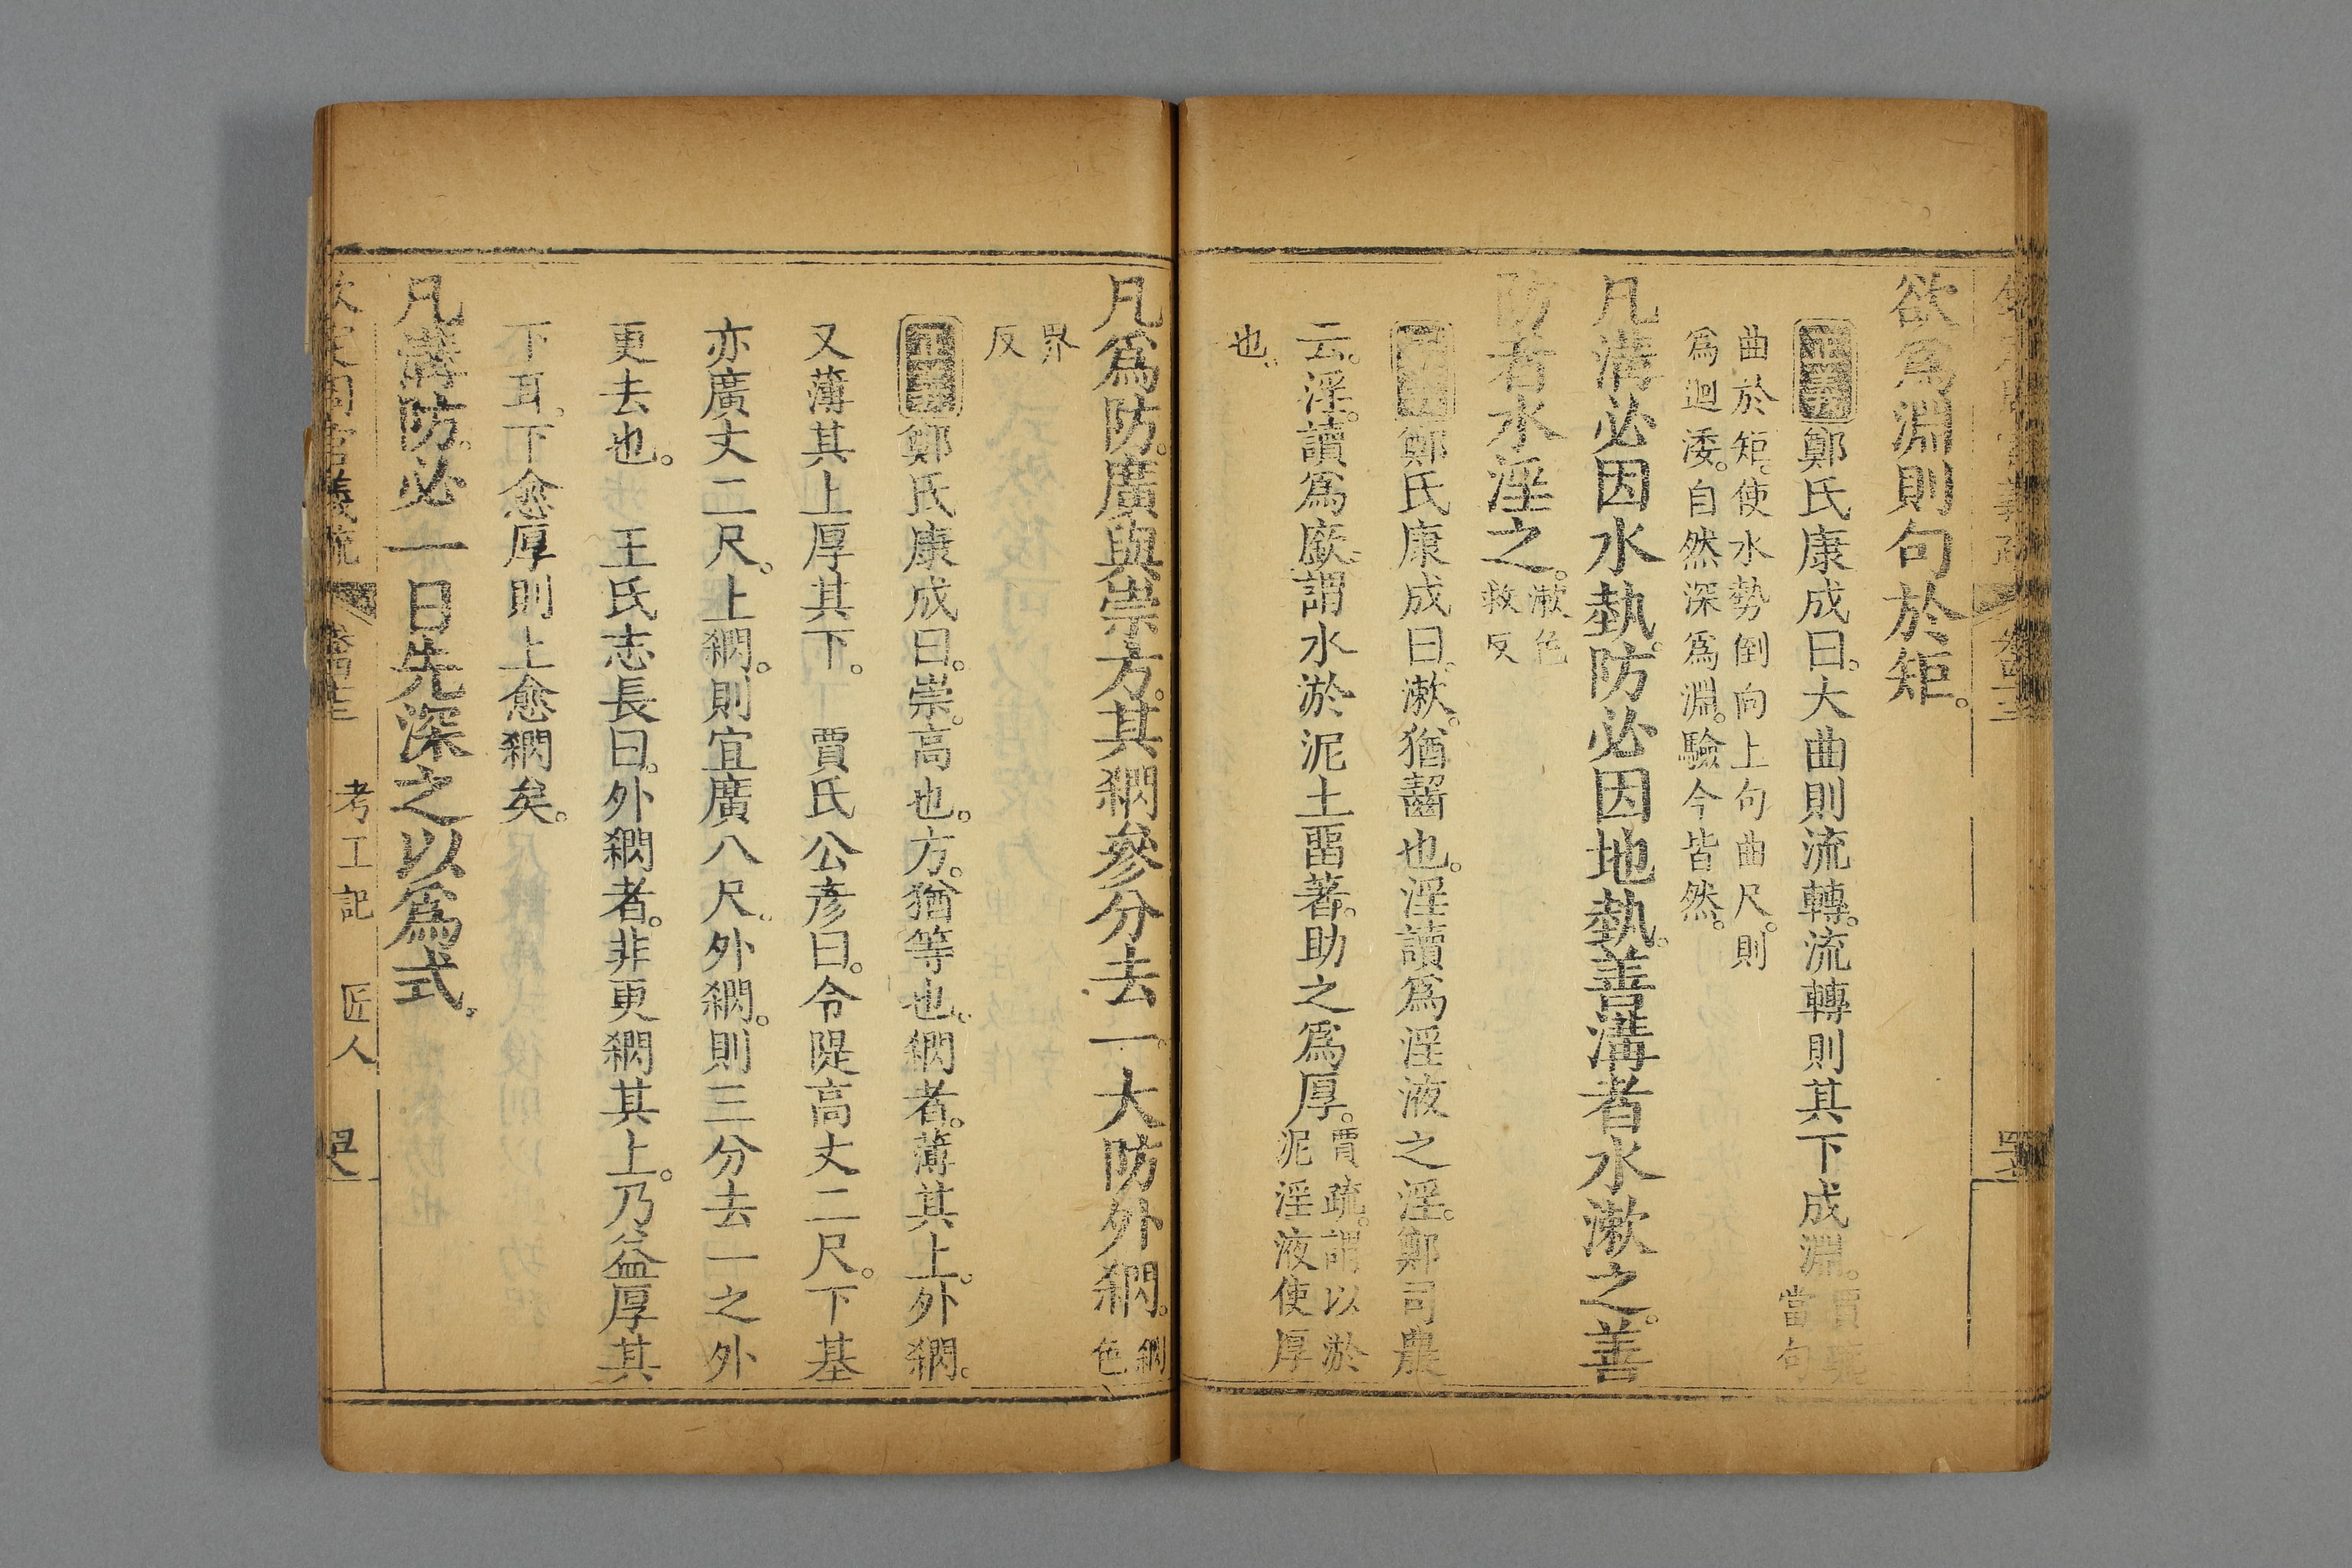 欲爲淵則句於矩。
正義鄭氏康成曰。大曲則流轉。流轉則其下成淵。賈疏當句
曲於矩。使水勢倒向上句曲尺。則
爲迴溇。自然深爲淵。驗今皆然。
凡溝必因水埶。防必因地埶。善溝者水漱之。善
防者水淫之。漱色救反
正義鄭氏康成曰。漱。猶齧也。淫讀爲淫液之淫。鄭司農
云。淫。讀爲廞。謂水淤泥土畱著。助之爲厚。賈疏。謂以淤泥淫液使厚
也。
凡爲防。廣與崇方。其䦼參分去一。大防外䦼。䦼色
界
反
正義鄭氏康成曰。崇。高也。方。猶等也。䦼者。薄其上。外䦼。
又薄其上厚其下。 賈氏公彦曰。令隄高丈二尺。下基
亦廣丈二尺。上䦼。則宜廣八尺。外䦼。則三分去一之外
更去也。 王氏志長曰。外䦼者。非更䦼其上。乃益厚其
下耳。下愈厚則上愈䦼矣。
凡溝防。必一日先深之以爲式。
欽定周官義疏 卷四十三 考工記 匠人 罕